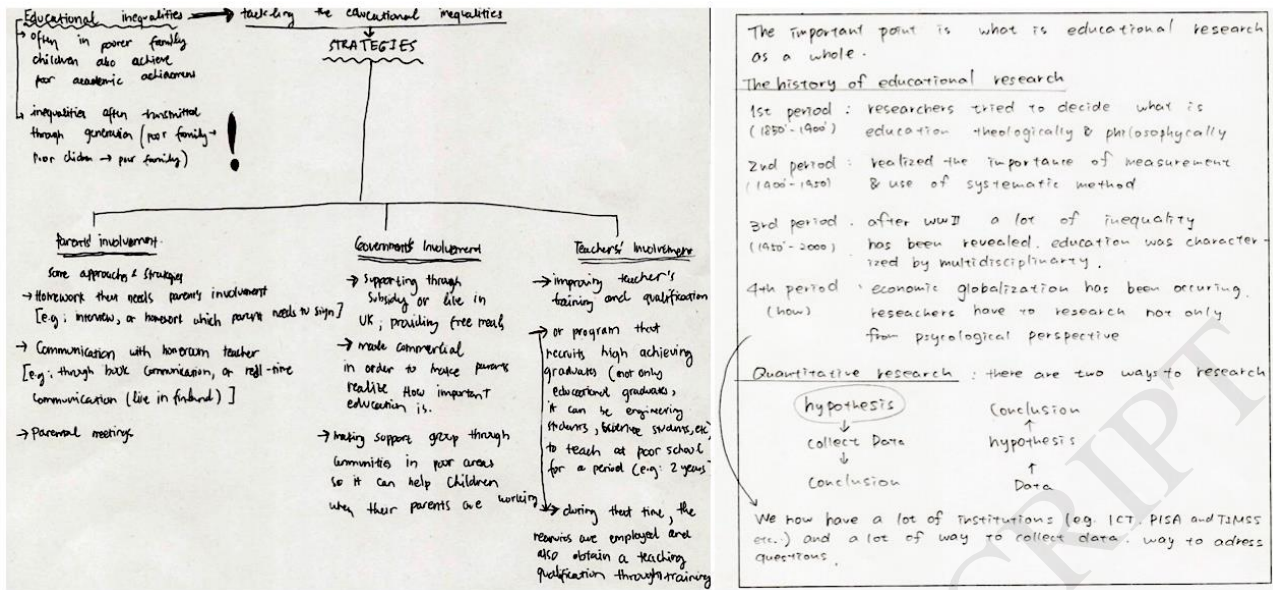 Educational inequalities → tackling the educational inequalities
→ often in poorer family
children also achieve
poor academic achievement
→ inequalities often transmitted
through generation (poor family →
poor children → poor family) !
STRATEGIES
Parents' involvement.
some approachs & strategies
→ Homework then needs parent's involvement
[e.g: interview, or homework which parent needs to sign]
→ Communication with homeroom teacher
[e.g: through book communication, or real-time
communication (like in finland)]
→ Parental meetings
Government's Involvement
→ supporting through
subsidy or like in
UK; providing free meals
→ made commercial
in order to make parents
realize How important
education is.
→ making support group through
communities in poor areas
so it can help children
when their parents are working
Teachers' Involvement
→ improving teacher's
training and qualification
→ or program that
recruits high achieving
graduates (not only
educational graduates,
it can be engineering
students, science students, etc)
to teach at poor school
for a period (e.g: 2 years)
→ during that time, the
recruits are employed and
also obtain a teaching
qualification through training
The important point is what is educational research
as a whole.
The history of educational research
1st period : researchers tried to decide what is
(1850'-1900') education theologically & philosophycally
2nd period : realized the importance of measurement
(1900'-1950) & use of systematic method
3rd period . after WWII a lot of inequality
(1950'-2000) has been revealed. education was character-
ized by multidisciplinarty.
4th period : economic globalization has been occuring.
(now) reseachers have to research not only
from psycological perspective
Quantitative research : there are two ways to research
hypothesis
↓
collect Data
↓
Conclusion
Conclusion
↑
hypothesis
↑
Data
We now have a lot of institutions (eg. ICT. PISA and TIMSS
etc..) and a lot of way to collect data. way to adress
questions.
CRIPT